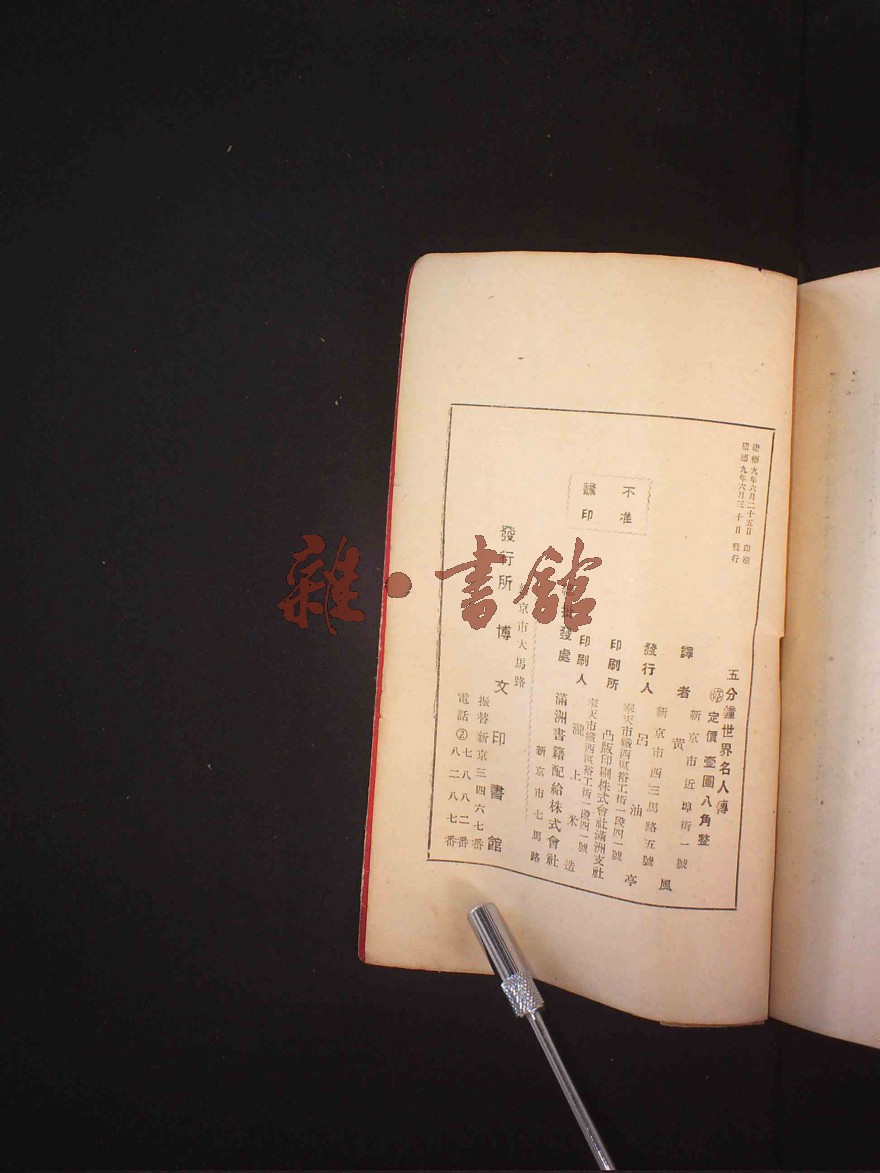 康德九年六月二十五日 印刷
康德九年六月三十日 發行
五分鐘世界名人傳
定價壹圓八角整
新京市近埠街一號
譯者 黄 風
新京市西三馬路五號
發行人 呂油亭
奉天市鐵西區裕工街一段四一號
印刷所 凸版印刷株式會社滿洲支社
奉天市鐵西區裕工街一段四一號
印刷人 瀧上米造
新京市七馬路
批發處 滿洲書籍配給株式會社
不准
翻印
新京市大馬路
發行所 博文印書館
振替新京三四六七番
電話②七八八二番
八二八七番
雜·書館